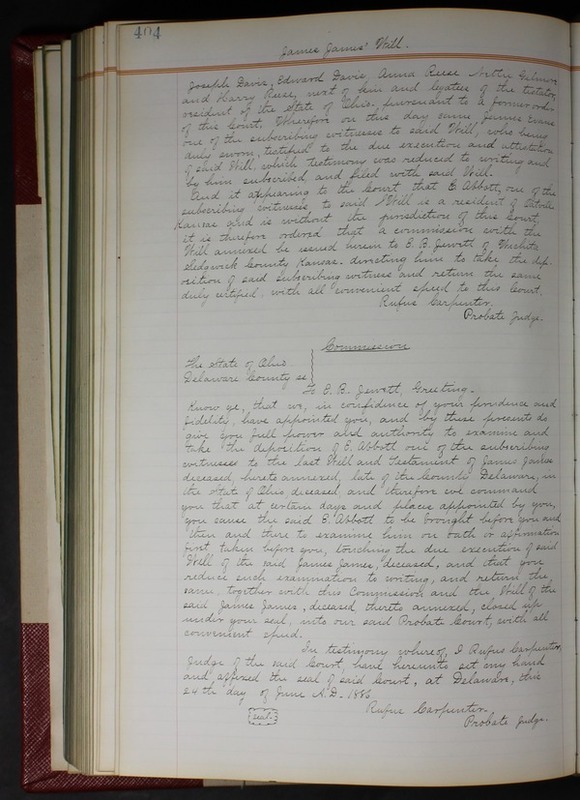 404
James James' Will.
Joseph Davis, Edward Davis, Anna Reese, Nettie Gilmore,
and Harry Reese, next of kin and legatees of the testator,
resident of the State of Ohio, pursuant to a former order
of this Court, Therefore on this day came, James Evans
one of the subscribing witnesses to said Will, who being
duly sworn, testified to the due execution and attestation
of said Will, which testimony was reduced to writing and
by him subscribed and filed with said Will.
And it appearing to the Court that E. Abbott, one of the
subscribing witnesses to said Will is a resident of
Kansas and is without the jurisdiction of this Court,
it is therefore ordered that a commission with the
Will annexed be issued herein to E. B. Jewett of Wichita
Sedgwick County Kansas. directing him to take the dep-
osition of said subscribing witness and return the same
duly certified, with all convenient speed to this Court.
Rufus Carpenter.
Probate Judge.
Commission
The State of Ohio
Delaware County ss
To E. B. Jewett, Greeting.
Know ye, that we, in confidence of your prudence and
fidelity, have appointed you, and by these presents do
give you full power and authority to examine and
take the deposition of E. Abbott one of the subscribing
witnesses to the last Will and Testament of James James
deceased, hereto annexed, late of the County Delaware, in
the State of Ohio, deceased, and therefore we command
you that at certain days and places appointed by you,
you cause the said E. Abbott to be brought before you and
then and there to examine him on oath or affirmation
first taken before you, touching the due execution of said
Will of the said James James, deceased, and that you
reduce such examination to writing, and return the
same, together with this Commission and the Will of the
said James James, deceased thereto annexed, closed up
under your seal, into our said Probate Court, with all
convenient speed.
In testimony whereof, I Rufus Carpenter,
Judge of the said Court, have hereunto set my hand
and affixed the seal of said Court, at Delaware, this
24th day of June A.D. 1886
Rufus Carpenter.
seal.
Probate Judge.